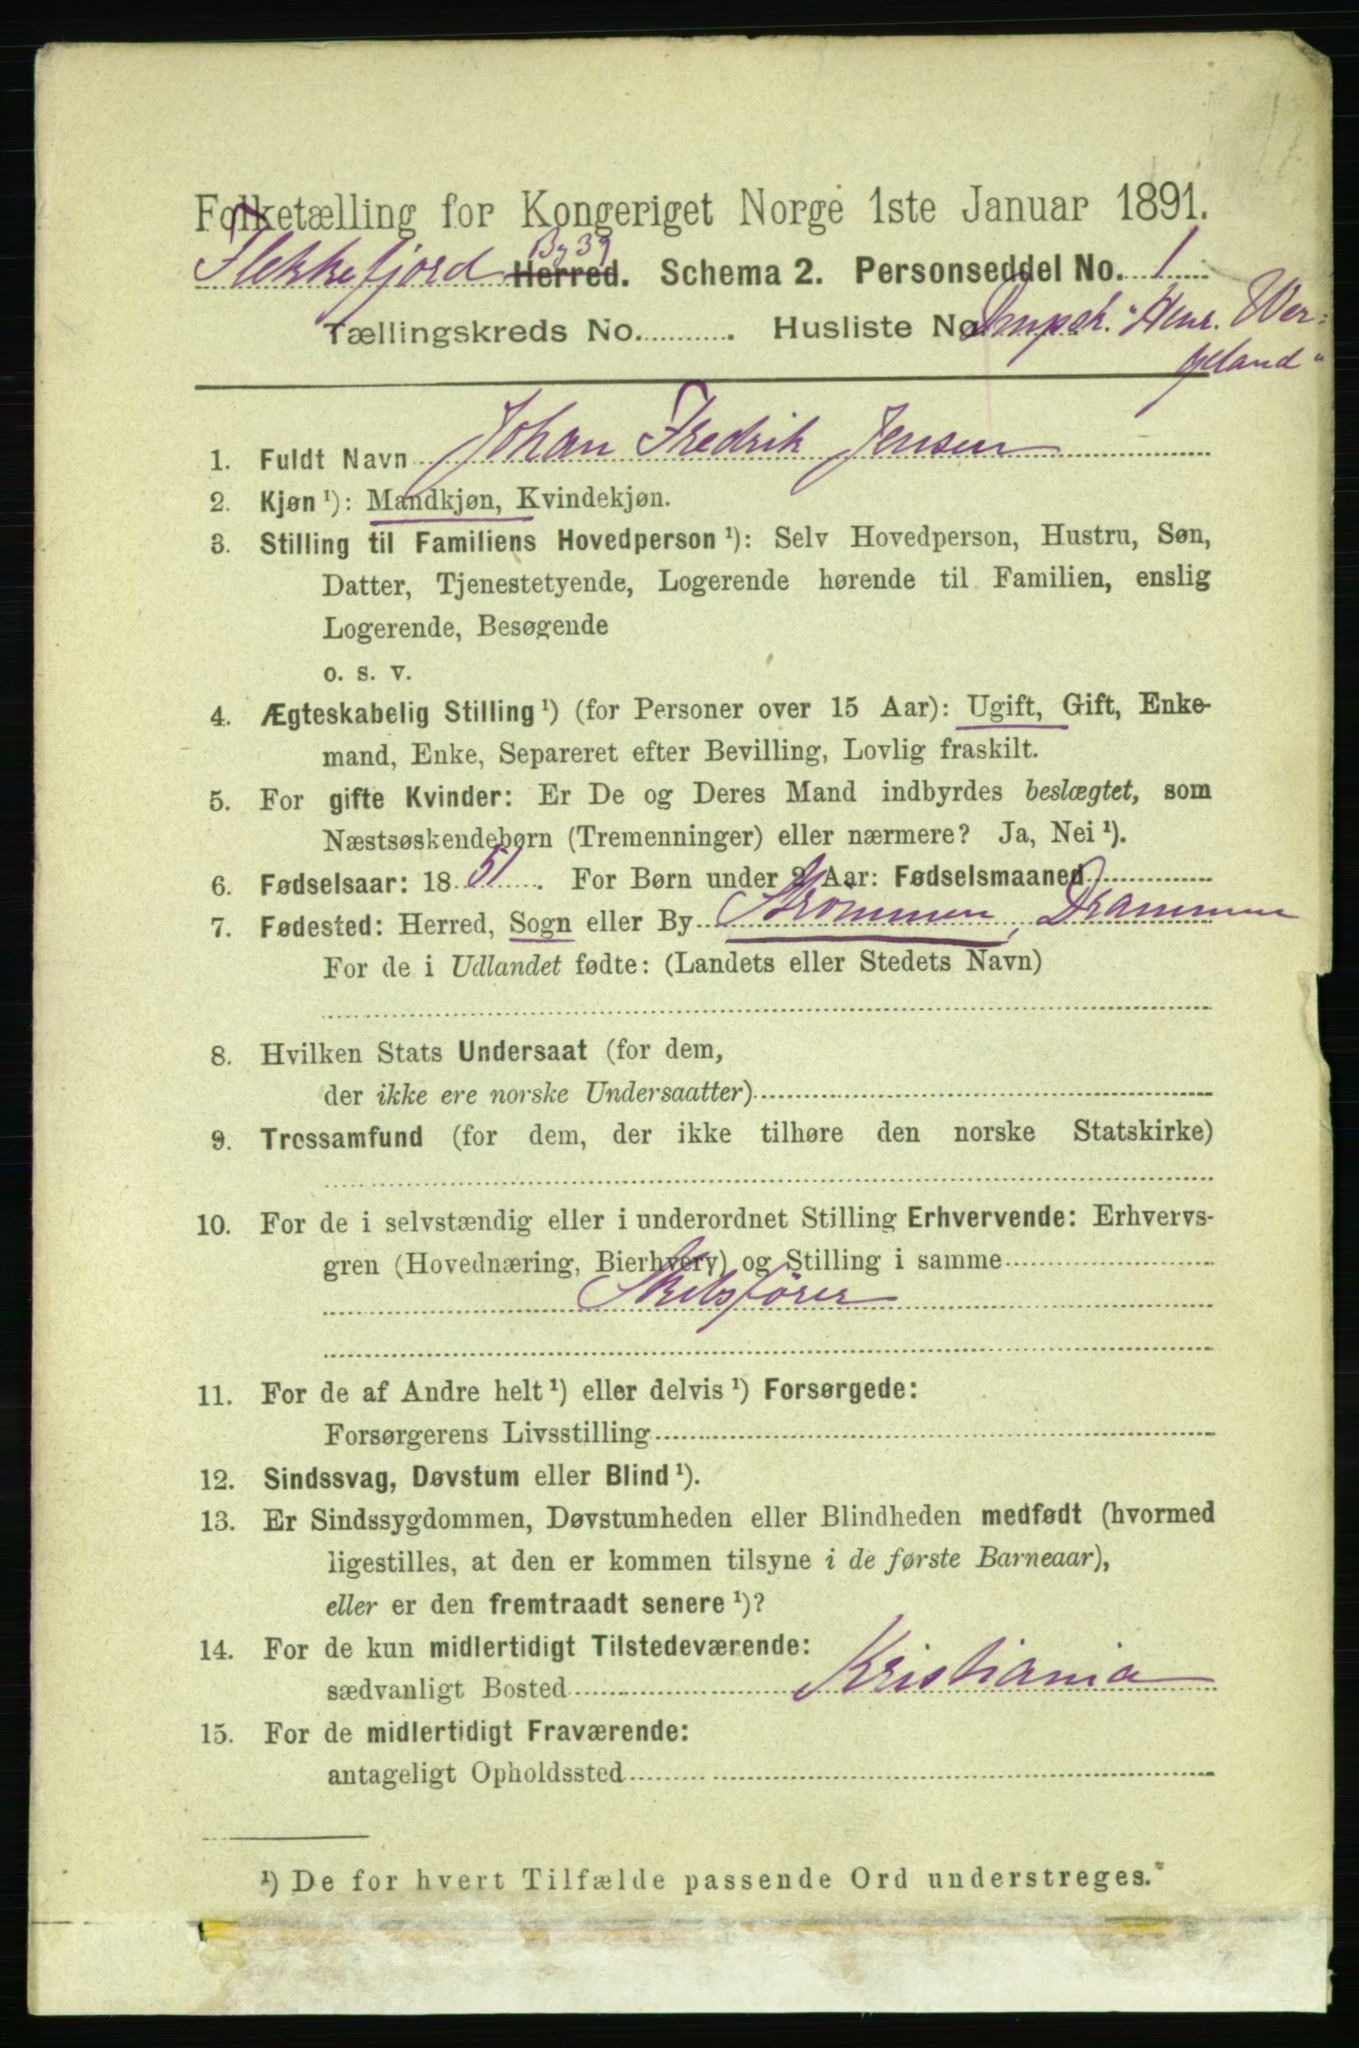 Folketælling for Kongeriget Norge 1ste Januar 1891.
Flekkefjord By 39 Herred. Schema 2. Personseddel No. 1
Tællingskreds No. Husliste No. Dmpsk. "Henr. Wer-
geland"
1. Fuldt Navn Johan Fredrik Jensen
2. Kjøn ¹): Mandkjøn, Kvindekjøn.
3. Stilling til Familiens Hovedperson ¹): Selv Hovedperson, Hustru, Søn,
Datter, Tjenestetyende, Logerende hørende til Familien, enslig
Logerende, Besøgende
o. s. v.
4. Ægteskabelig Stilling ¹) (for Personer over 15 Aar): Ugift, Gift, Enke-
mand, Enke, Separeret efter Bevilling, Lovlig fraskilt.
5. For gifte Kvinder: Er De og Deres Mand indbyrdes beslægtet, som
Næstsøskendebørn (Tremenninger) eller nærmere? Ja, Nei ¹).
6. Fødselsaar: 1851. For Børn under 2 Aar: Fødselsmaaned
7. Fødested: Herred, Sogn eller By Strømmen, Drammen
For de i Udlandet fødte: (Landets eller Stedets Navn)
8. Hvilken Stats Undersaat (for dem,
der ikke ere norske Undersaatter)
9. Trossamfund (for dem, der ikke tilhøre den norske Statskirke)
10. For de i selvstændig eller i underordnet Stilling Erhvervende: Erhvervs-
gren (Hovednæring, Bierhverv) og Stilling i samme
Skibsfører
11. For de af Andre helt ¹) eller delvis ¹) Forsørgede:
Forsørgerens Livsstilling
12. Sindssvag, Døvstum eller Blind ¹).
13. Er Sindssygdommen, Døvstumheden eller Blindheden medfødt (hvormed
ligestilles, at den er kommen tilsyne i de første Barneaar),
eller er den fremtraadt senere ¹)?
14. For de kun midlertidigt Tilstedeværende:
sædvanligt Bosted Kristiania
15. For de midlertidigt Fraværende:
antageligt Opholdssted
¹) De for hvert Tilfælde passende Ord understreges.